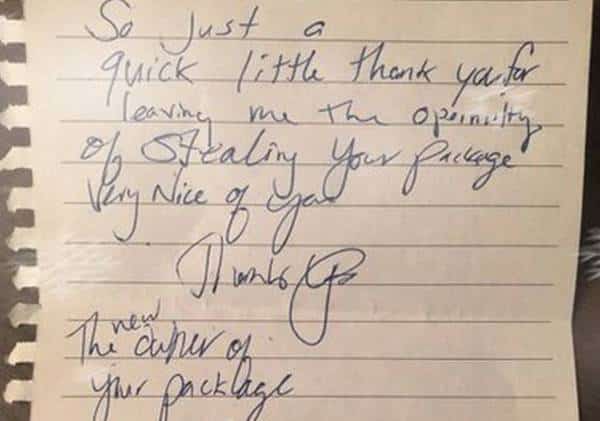 So Just a
quick little thank you for
leaving me the
of Stealing Your package
Very Nice of you
Thanks
new
The owner of
your package